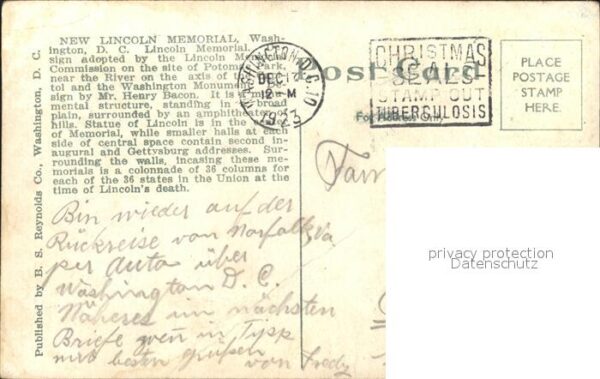 NEW LINCOLN MEMORIAL, Wash-
ington, D. C. Lincoln Memorial.
sign adopted by the Lincoln Mem
Commission on the site of Potomac Park,
near the River on the axis of the
tol and the Washington Monument. De-
sign by Mr. Henry Bacon. It is a monu-
mental structure, standing in a broad
plain, surrounded by an amphitheater of
hills. Statue of Lincoln is in the center
of Memorial, while smaller halls at each
side of central space contain second in-
augural and Gettysburg addresses. Sur-
rounding the walls, incasing these me-
morials is a colonnade of 36 columns for
each of the 36 states in the Union at the
time of Lincoln's death.
Published by B. S. Reynolds Co., Washington, D. C.
WASHINGTON, D.C. 10
DEC 17
12-M
1923
Post Card
CHRISTMAS
SEALS
STAMP OUT
TUBERCULOSIS
For Address Only
PLACE
POSTAGE
STAMP
HERE.
Bin wieder auf der
Rückreise von Norfolk Va
per Auto über
Washington D. C.
Näheres im nächsten
Briefe
mit besten Grüßen
von Fredy
Fam
privacy protection
Datenschutz